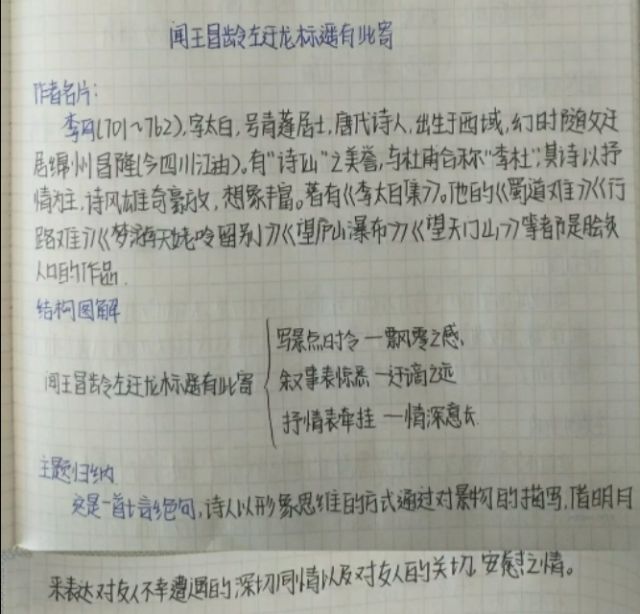 闻王昌龄左迁龙标遥有此寄
作者名片:
李白(701~762),字太白,号青莲居士,唐代诗人,出生于西域,幻时随父迁
居绵州昌隆(今四川江由)。有“诗仙”之美誉,与杜甫合称“李杜”;其诗以抒
情为主,诗风雄奇豪放,想象丰富。著有《李太白集》。他的《蜀道难》《行
路难》《梦游天姥吟留别》《望庐山瀑布》《望天门山》等都是脍炙
人口的作品.
结构图解
写景点时令—飘零之感、
闻王昌龄左迁龙标遥有此寄
叙事表惊悉—迁谪之远
抒情表牵挂—情深意长
主题归纳
这是一首七言绝句,诗人以形象思维的方式通过对景物的描写,借明月
来表达对友人不幸遭遇的深切同情以及对友人的关切、安慰之情。